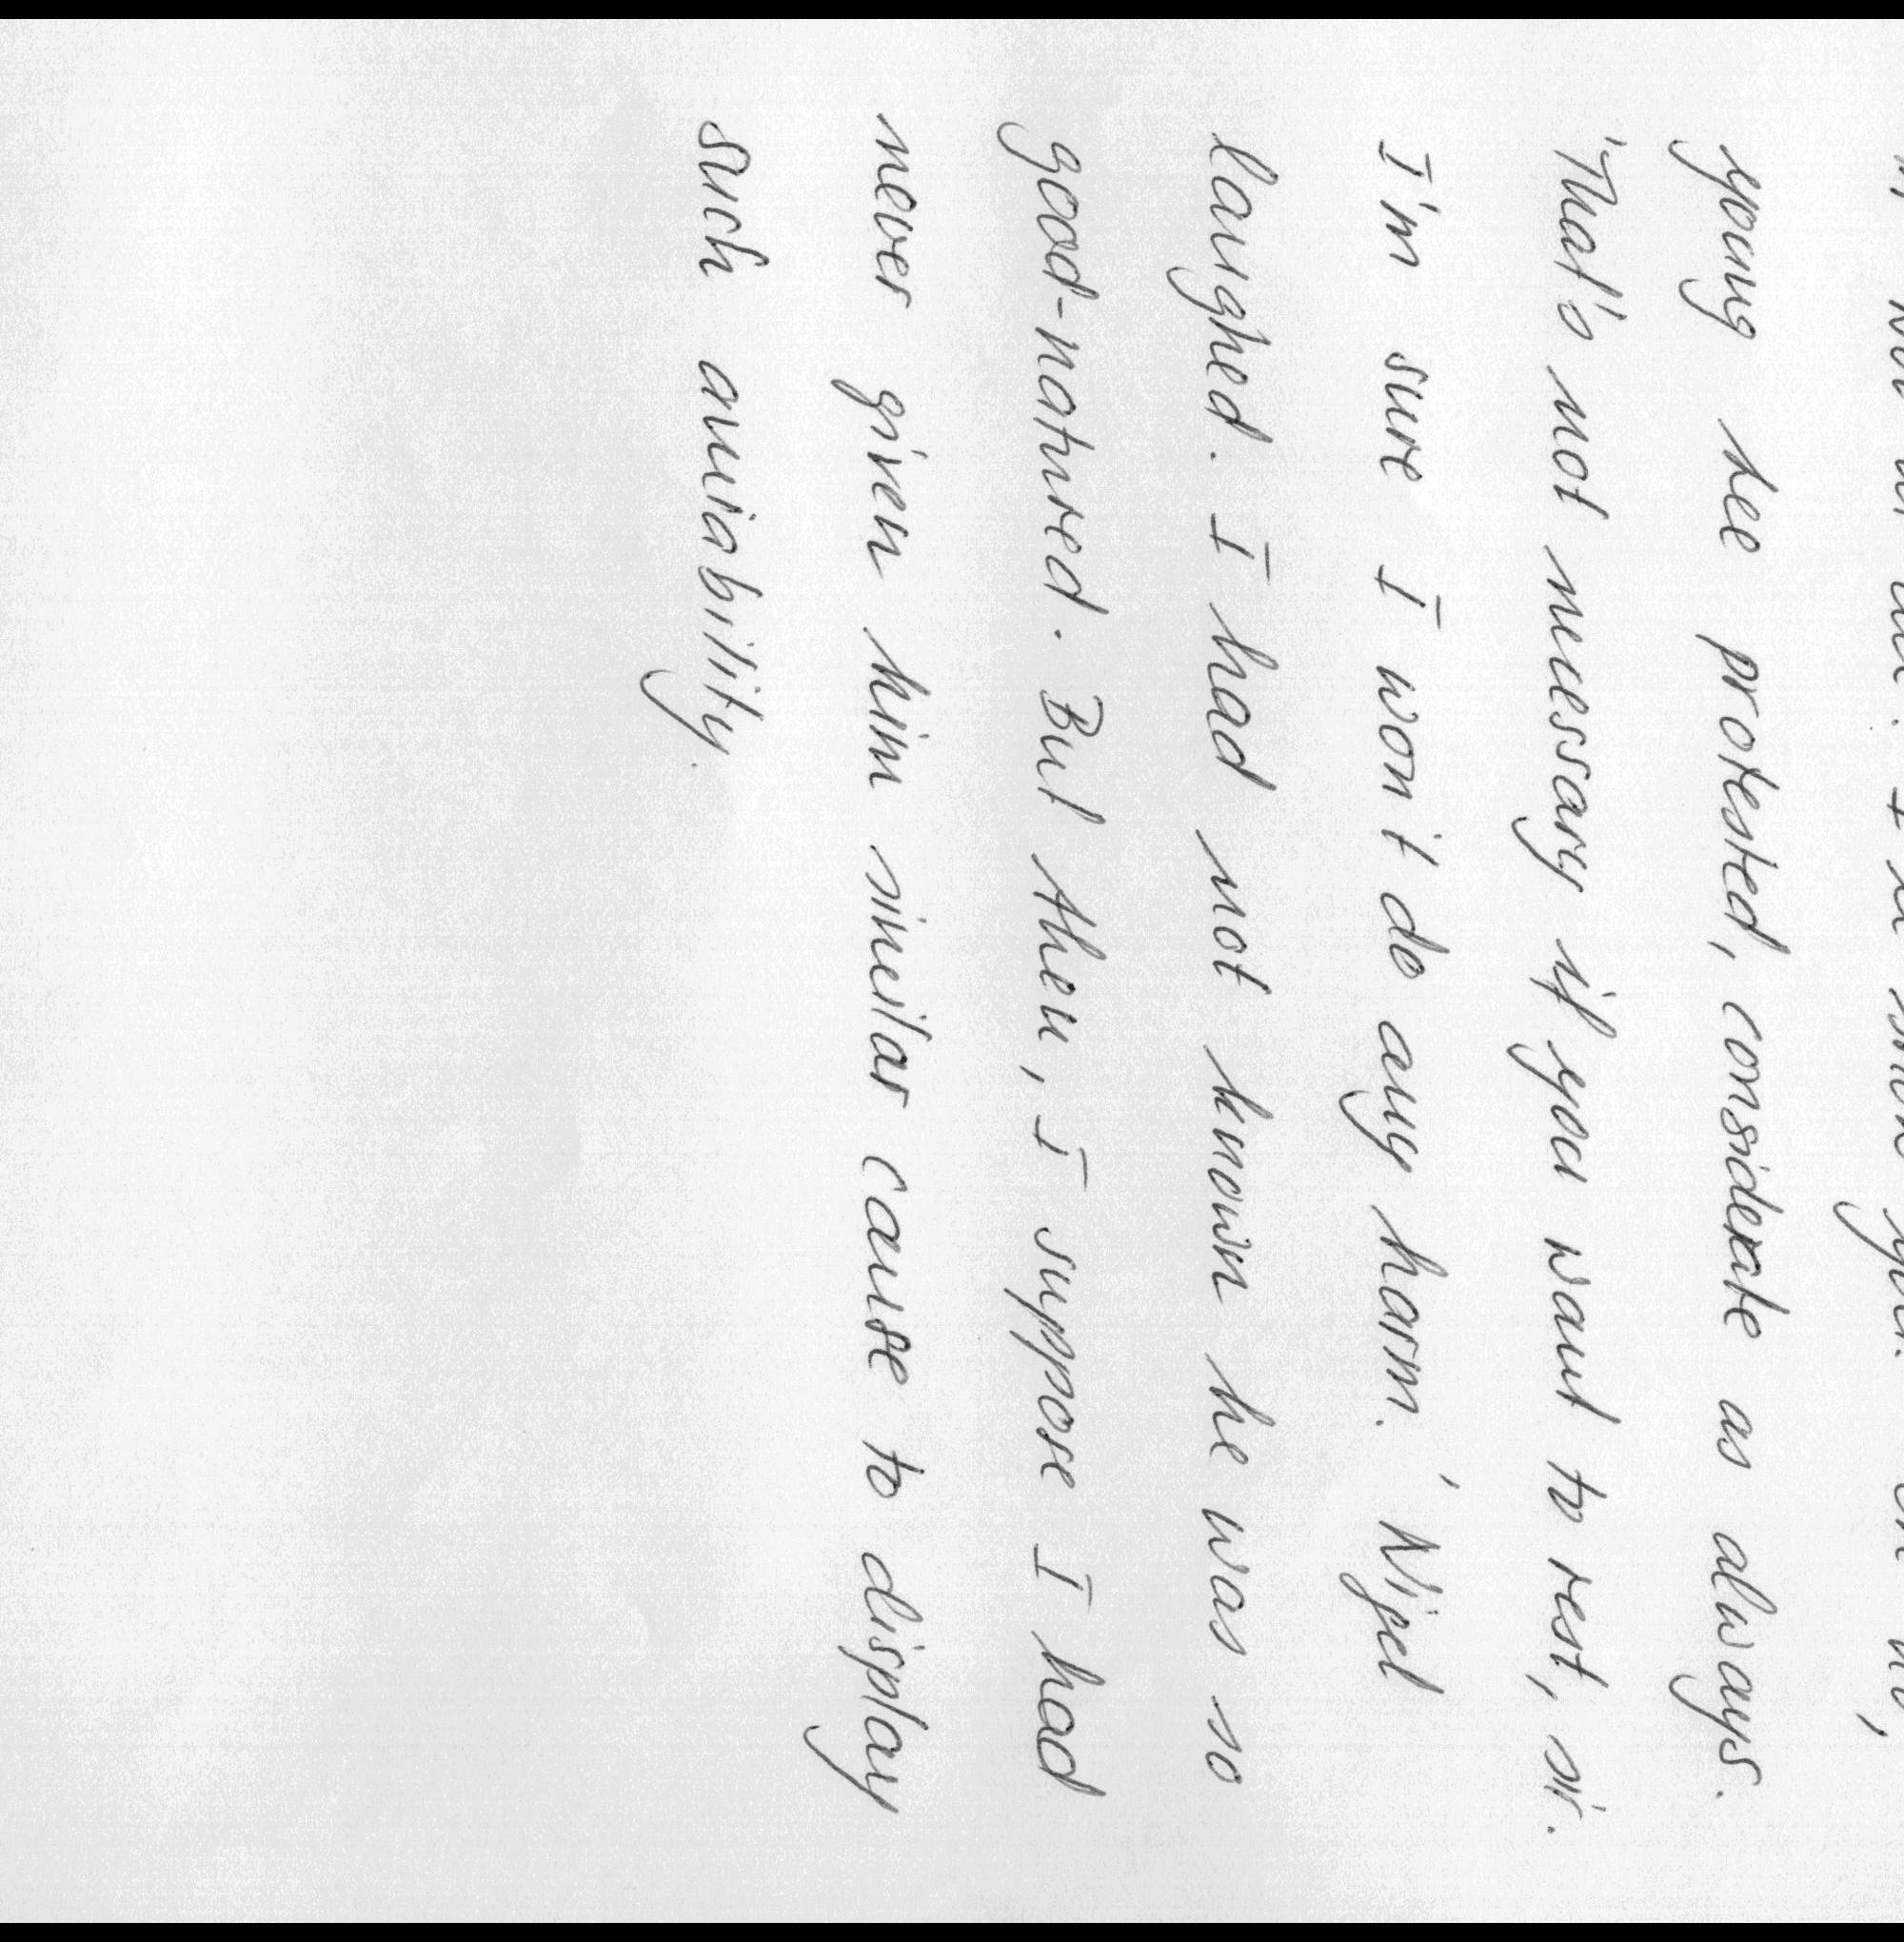 young Lee protested, considerate as always.
'That's not necessary if you want to rest, sir.
I'm sure I won't do any harm.' Nigel
laughed. I had not known he was so
good-natured. But then, I suppose I had
never given him similar cause to display
such amiability.